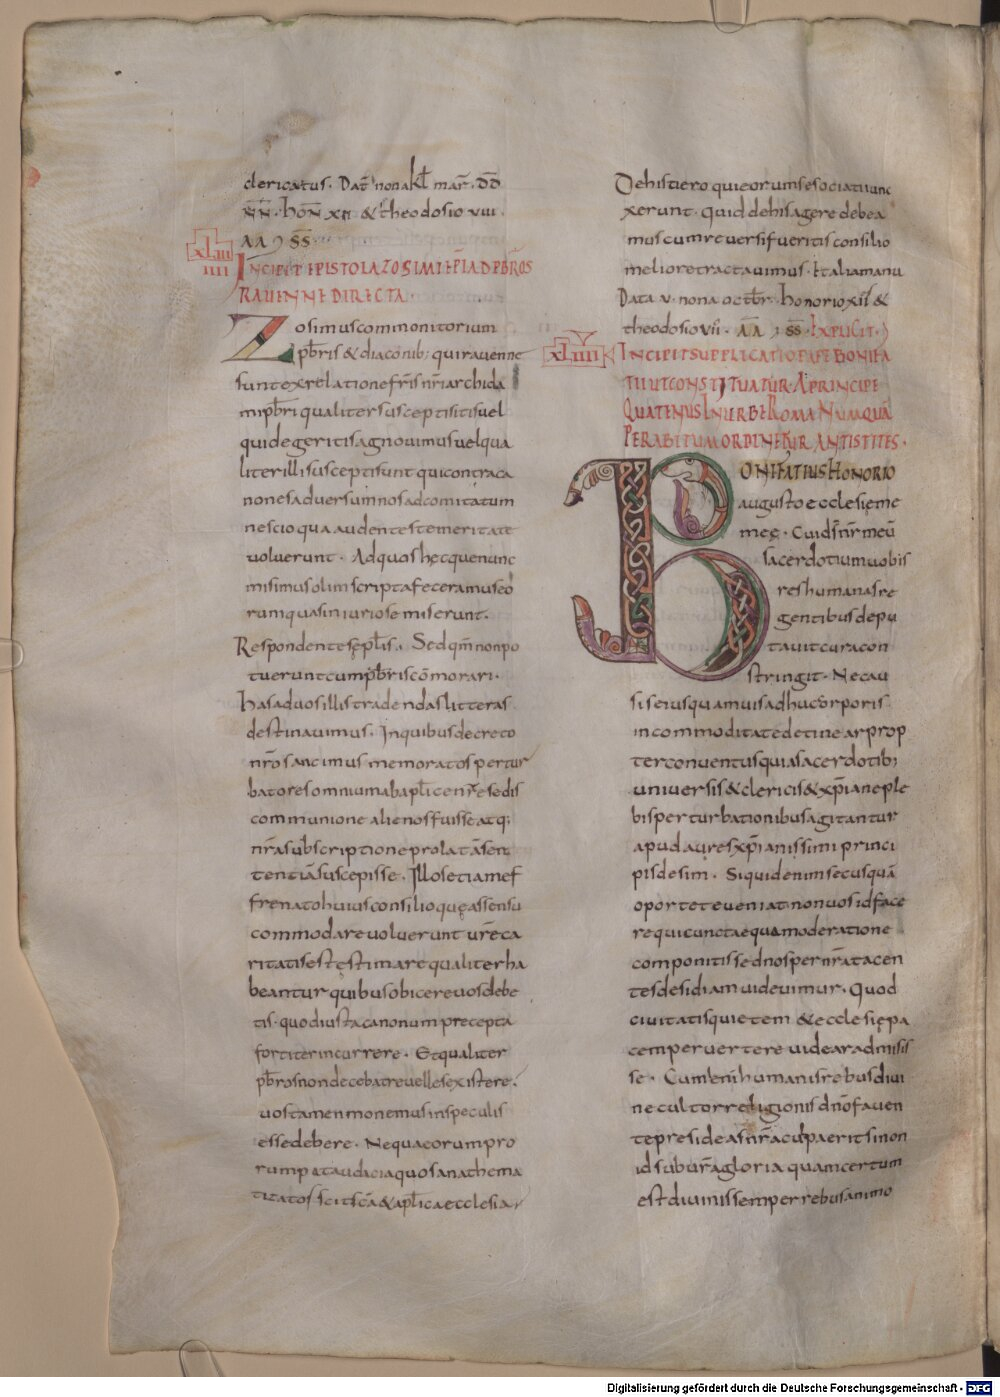 clericatus. Dat̄ nona kl̄ mar̄. DD̄
N̄N̄. hoN̄ xii & theodosio viii.
AA ꝯ SS̄
xliiiiiii
INCIPIT EPISTOLA ZOSIMI EPI AD PB̄ROS
RAUENNE DIRECTA.
Zosimus commonitorium
pb̄ris & diaconib; qui rauenne
sunt ex relatione fr̄is nr̄i archida
mi pb̄ri qualiter suscepti sitis uel
quid egeritis agnouimus uel qua
liter illi suscepti sunt qui contra ca
nones aduersum nos ad comitatum
nescio qua audentes temeritate
uoluerunt. Ad quos hęc quę nunc
misimus olim scripta feceramus eo
rum quas iniuriose miserunt.
Respondentes ęplīs. Sed qm̄ non po
tuerunt cum pb̄ris cōmorari.
has ad uos illis tradendas litteras
destinauimus. In quibus decreto
nr̄o sancimus memoratos pertur
batores omnium ab apl̄icę nr̄ę sedis
communione alienos fuisse atq;
nr̄a subscriptione prolatā sen
tentiā suscepisse. Illos etiam ef
frenato huius consilio quę assensu
commodare uoluerunt ur̄e ca
ritatis est ęstimare qualiter ha
beantur quibus obicere uos debe
tis. quod iusta canonum precepta
fortiter incurrere. Et qualiter
pb̄ros non decebat reuelles existere.
uos tamen monemus in speculis
esse debere. Ne qua eorum pro
rumpat audacia quos anathema
tizatos scit sc̄a & apl̄ica ecclesia.
De his uero qui eorum se sociati iunc
xerunt. quid de his agere debea
mus cum reuersi fueritis consilio
meliore tractauimus. Et alia manu
Data v. nona octb̄r. honorio xii &
theodosio vii. AĀ ꝯ SS̄. EXPLICIT.
xliiii
INCIPIT SUPPLICATIO PAPE BONIFA
TII UT CONSTITUATUR A PRINCIPE
QUATENUS IN URBE ROMA NUMQUĀ
PER ABITUM ORDINETUR ANTISTITES.
BONIFATIUS HONORIO
augusto ecclesięme
meę. Cui ds̄ nr̄ meū
sacerdotium uobis
res humanas re
gentibus depu
tauit cura con
stringit. Ne cau
sis eius quamuis adhuc corporis
incommoditate detinear prop
ter conuentus qui a sacerdotib;
uniuersis & clericis & xp̄ianę ple
bis perturbationibus agitantur
apud aures xp̄ianissimi princi
pis desim. Si quid enim secus quā
oportet eueniat non uos id face
re qui cuncta equa moderatione
componitis sed nos per nr̄a tacen
tes desidiam uidebimur. Quod
ciuitatis quietem & ecclesię pa
cem peruertere uidear admisis
se. Cum eni humanis rebus diui
ne cultor religionis dn̄o fauen
te presideas nr̄a culpa erit si non
id sub ur̄a gloria quam certum
est diuinis semper rebus animo
Digitalisierung gefördert durch die Deutsche Forschungsgemeinschaft - DFG